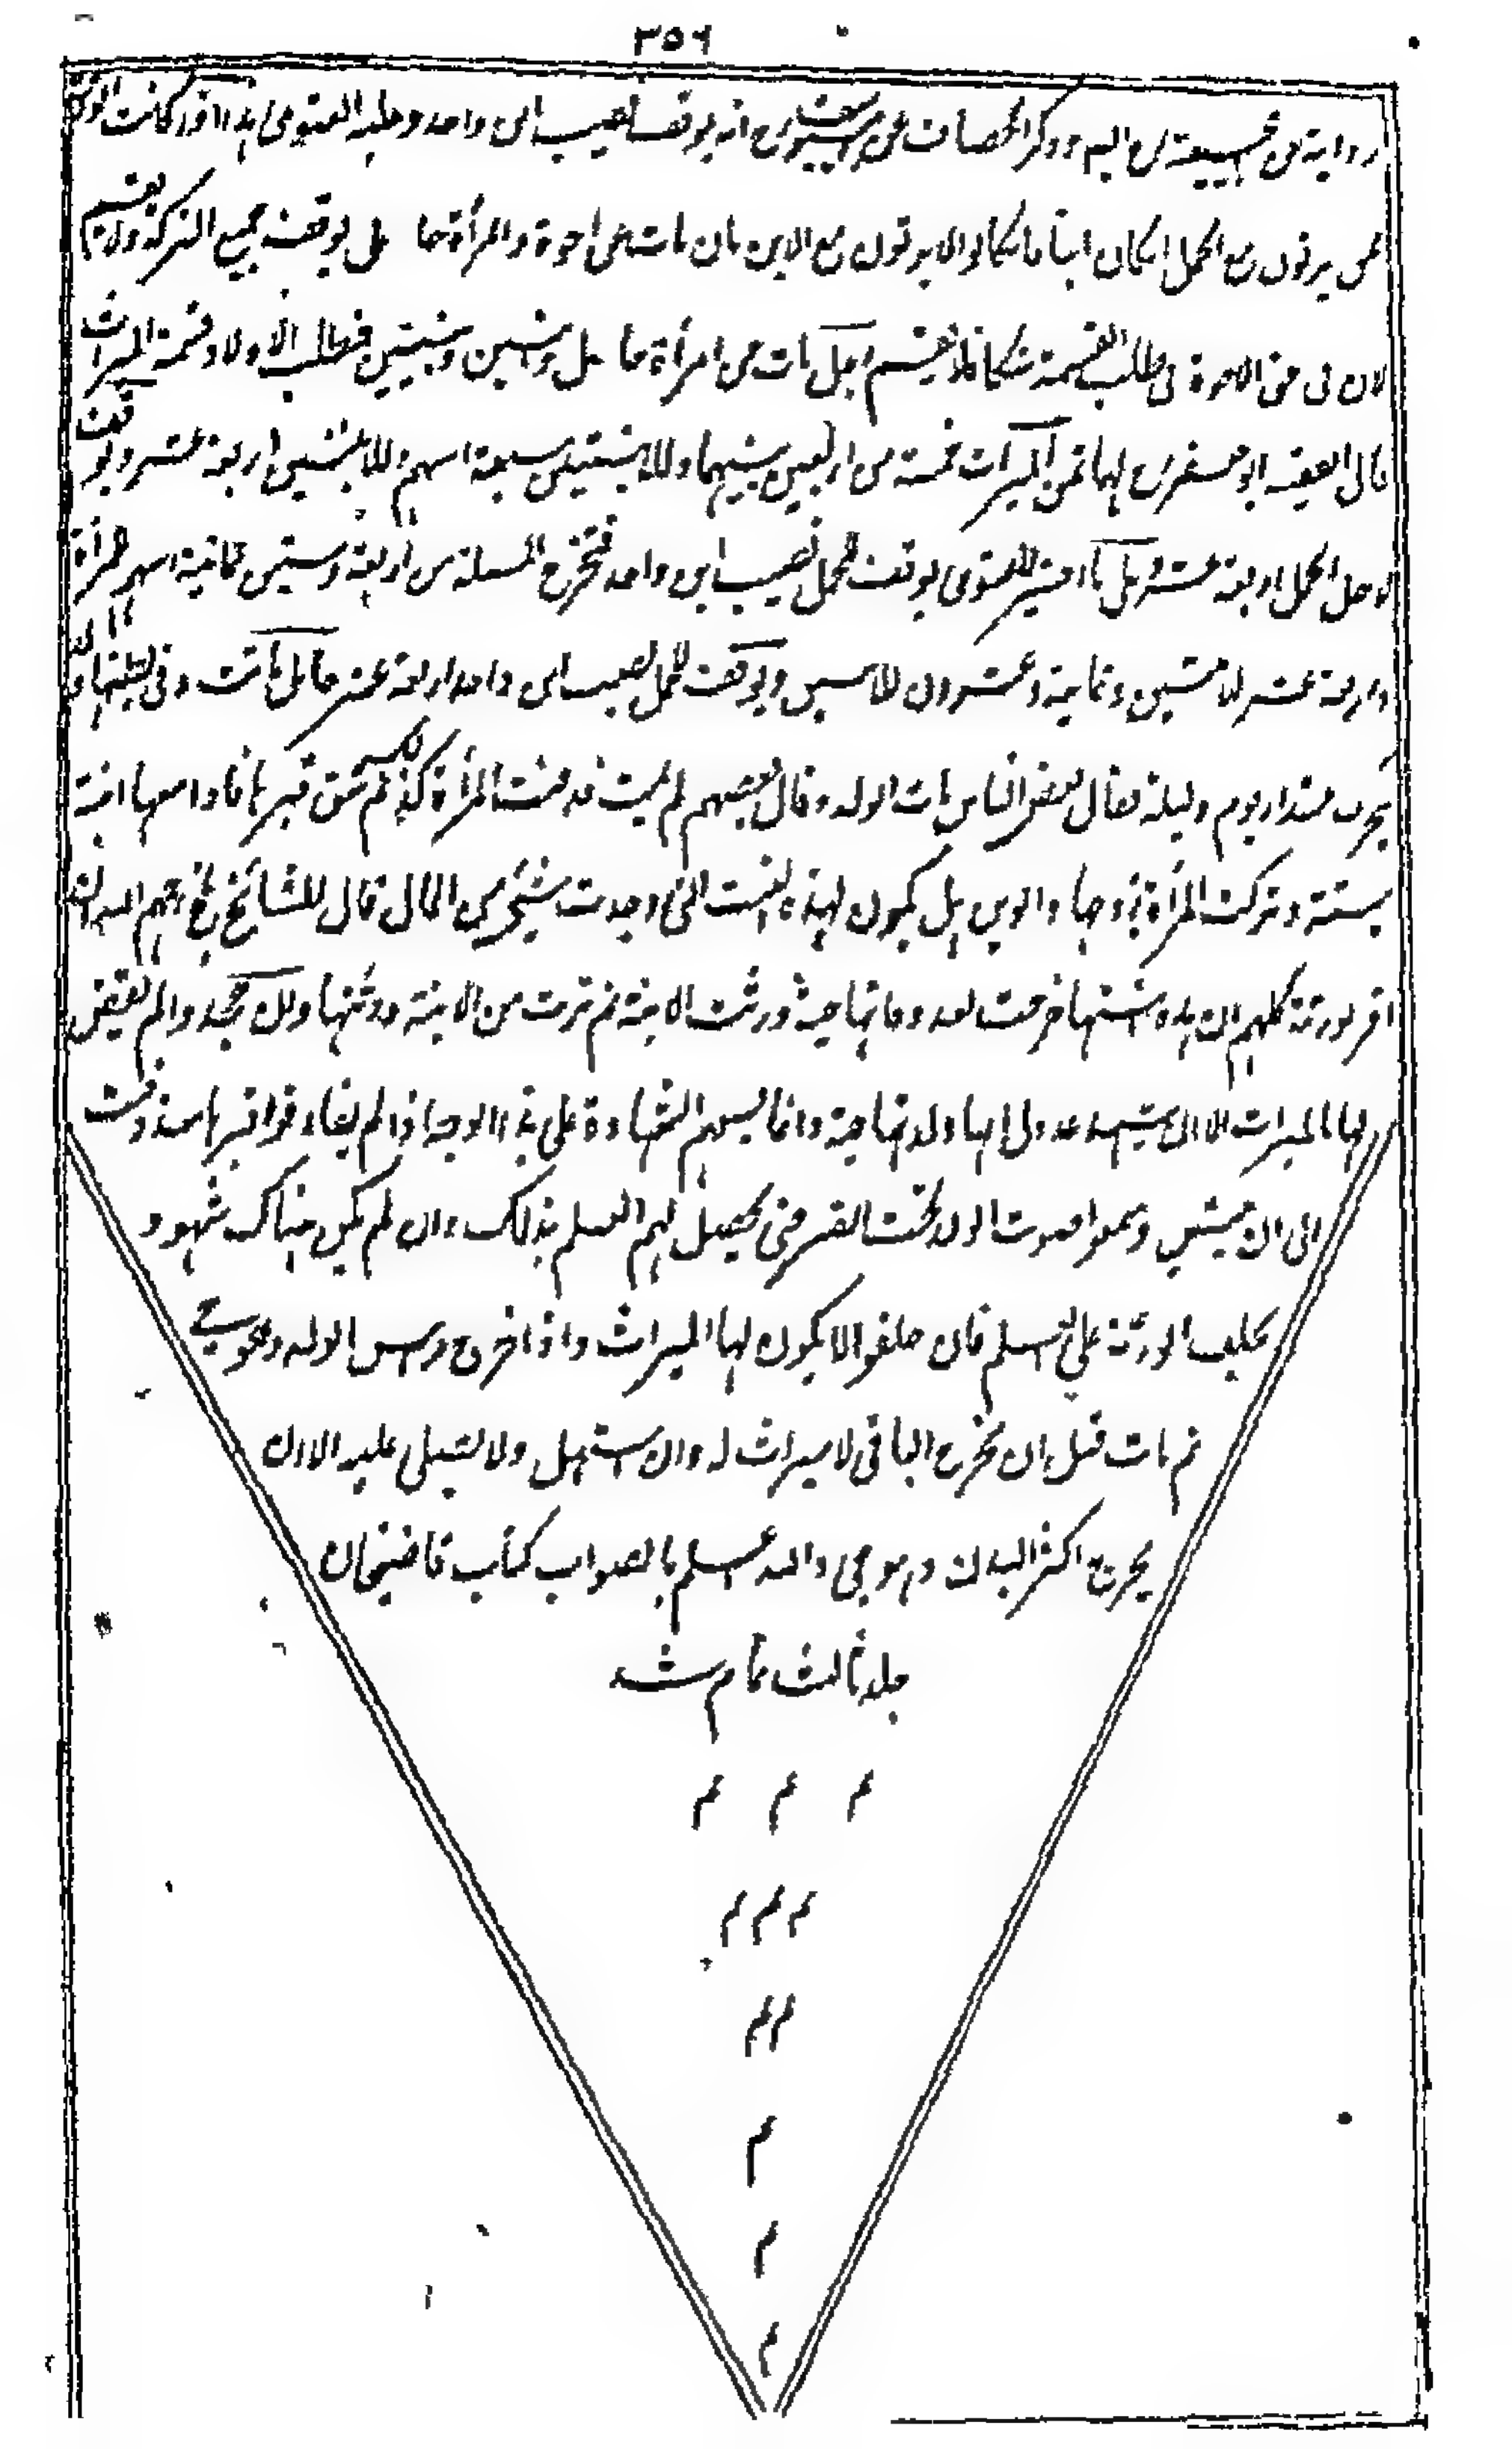 ٣٥٦
رواية عن ابى حنيفة رح اليه وذكر الخصاف عن ابى يوسف رح انه يوقف نصيب ابن واحد وعليه الفتوى هذا اذا كانت الورثة
ممن يرثون مع الحمل ان كان ابنا فان كانوا لا يرثون مع الابن بان مات عن اخوة والمرأة حامل يوقف جميع التركة ولا يقسم
لان فى حق الاخوة فى طلب القسمة شكا فلا يقسم رجل مات عن امرأة حامل وابنين وبنتين فطلب الاولاد قسمة الميراث
قال الفقيه ابو جعفر رح لها ثمن الميراث خمسة من اربعين بينهما وللابنتين سبعة اسهم وللابنين اربعة عشر ويوقف
لاجل الحمل اربعة عشر وقيل ما اختير للفتوى يوقف للحمل نصيب ابن واحد فتخرج المسئلة من اربعة وستين ثمانية اسهم للمرأة
واربعة عشر للابنتين وثمانية وعشرون للابنين ويوقف للحمل نصيب ابن واحد اربعة عشر حامل ماتت وفى بطنها ولد
يتحرك مقدار يوم وليلة فقال بعض الناس مات الولد وقال بعضهم لم يمت فدفنت المرأة كذلك ثم نبش قبرها فاذا معها ابنة
ميتة وتركت المرأة زوجها وابوين هل يكون لهذه البنت التى وجدت شئ من المال قال المشائخ بلخ رحمهم الله ان
اقر الورثة كلهم ان هذه ابنتها خرجت بعد وفاتها حية ورثت الابنة ثم ترث من الابنة ورثتها وان جحدوا لم يقض
لها بالميراث الا ان يشهد عدول انها ولدتها حية وانما يسعهم الشهادة على هذا الوجه اذا لم يفارقوا قبرها منذ دفنت
الى ان نبش وسمعوا صوت الولد تحت القبر حتى يحصل لهم العلم بذلك وان لم يكن هناك شهود
يحلف الورثة على العلم فان حلفوا لا يكون لها الميراث واذا خرج رأس الولد وهو حى
ثم مات قبل ان يخرج الباقى لا ميراث له وان استهل ولا يصلى عليه الا ان
يخرج اكثر البدن وهو حى والله اعلم بالصواب كتاب قاضيخان
جلد ثالث تمام شد
م م م
م م م
م م
م
م
م